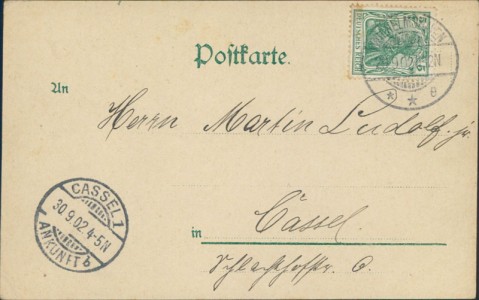 Postkarte.
An
Herrn Martin Ludolf. jr.
in Cassel.
Schlachthofstr. 6.
CASSEL 1
30 9.02 4-5N
ANKUNFT b